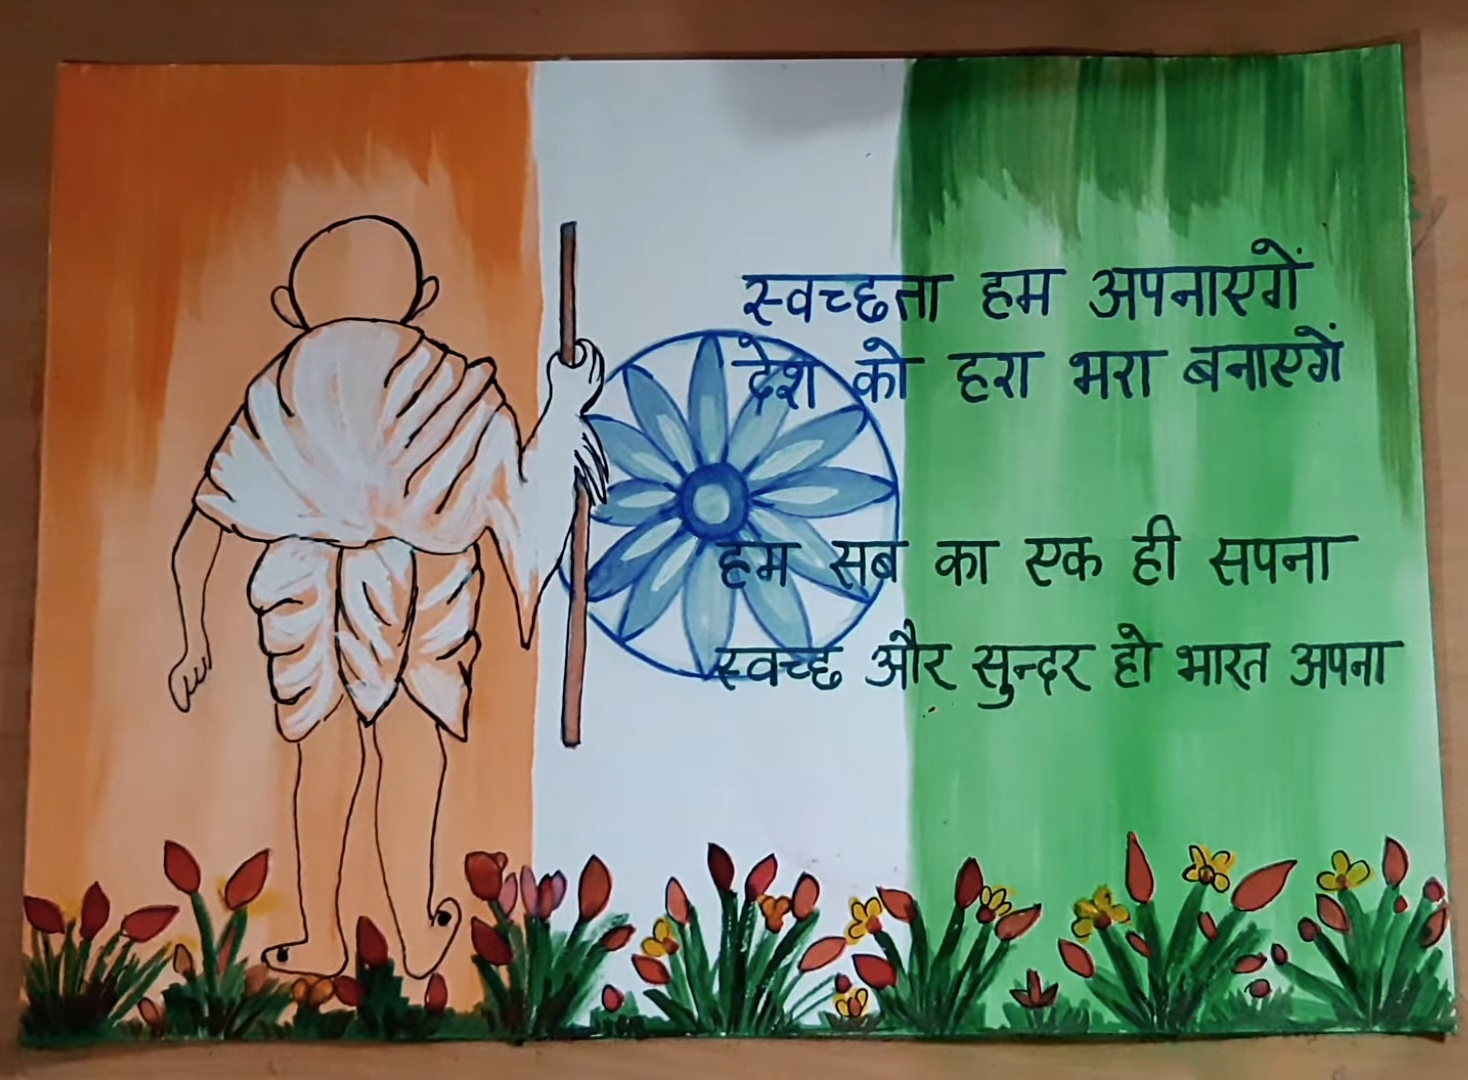 स्वच्छता हम अपनाएगें
देश को हरा भरा बनाएगें
हम सब का एक ही सपना
स्वच्छ और सुन्दर हो भारत अपना